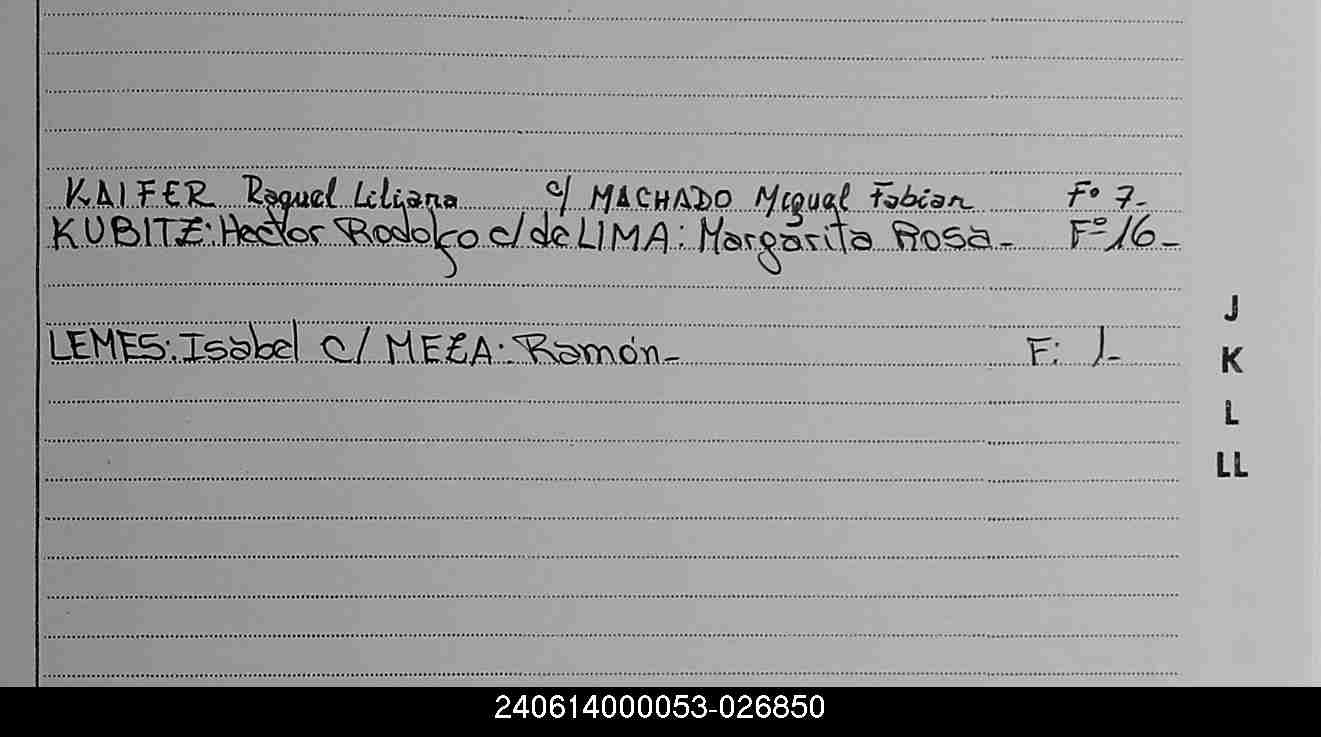 KAIFER Raquel Liliana c/ MACHADO Miguel Fabian Fº 7-
KUBITZ: Hector Rodolfo c/ de LIMA: Margarita Rosa- Fº 16-
LEMES: Isabel c/ MEZA: Ramón- F: 1-
J
K
L
LL
240614000053-026850